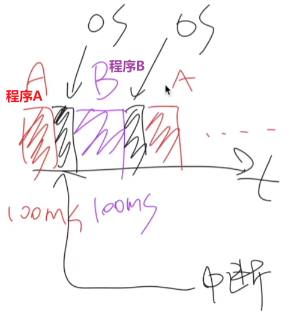 OS OS
A B 程序B A
程序A
t
100ms 100ms
中断